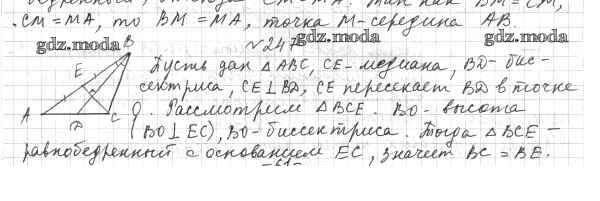 CM = MA, то BM = MA, точка M - середина AB.
№247
gdz.moda gdz.moda gdz.moda
Пусть дан △ABC, CE - медиана, BD - бис-
сектриса, CE ⊥ BD, CE пересекает BD в точке
O. Рассмотрим △BCE. BO - высота
(BO ⊥ EC), BO - биссектриса. Тогда △BCE -
равнобедренный с основанием EC, значит BC = BE.
B
E
A
C
D
-61-